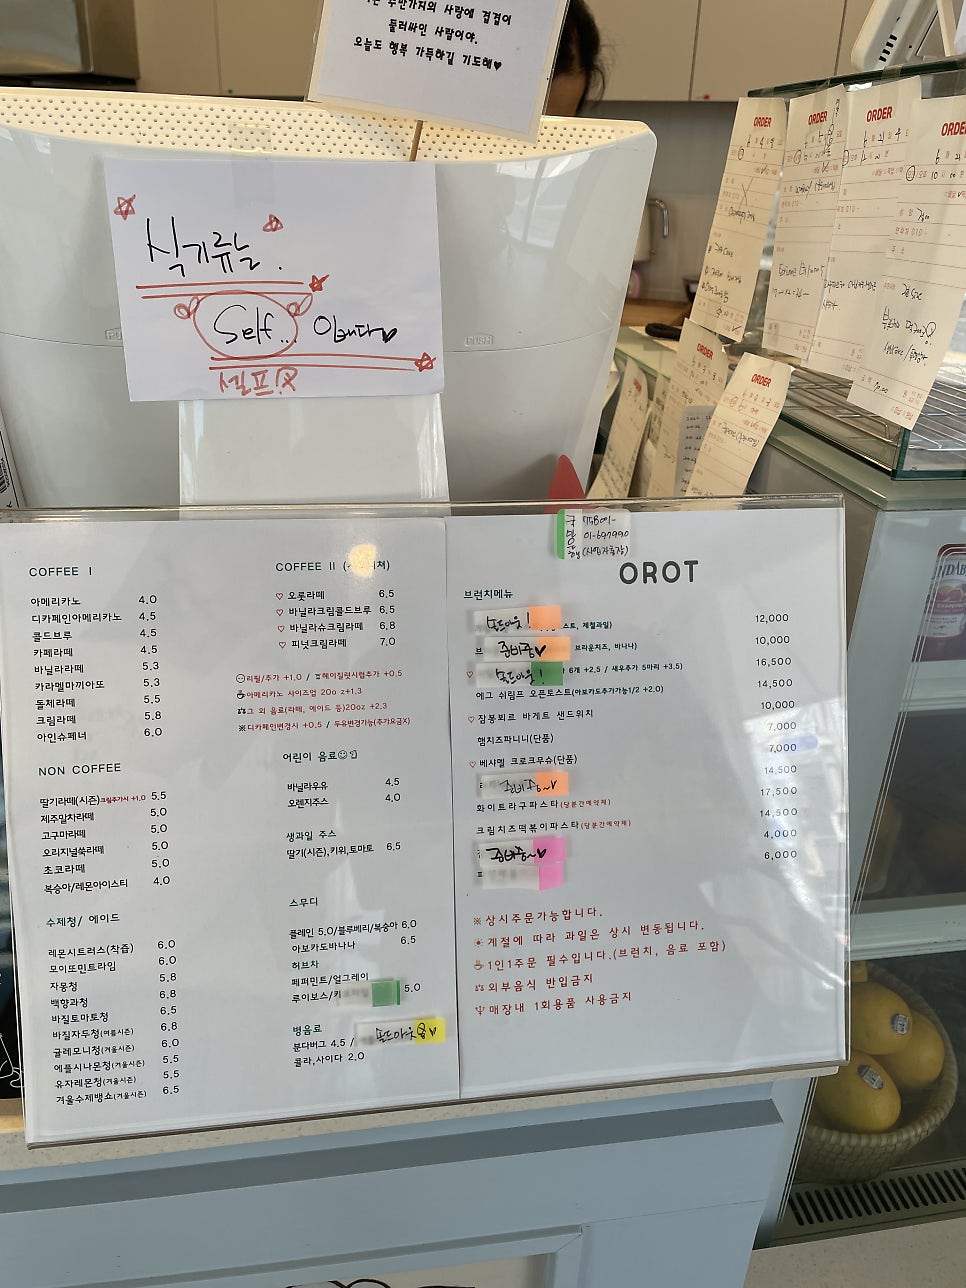 수만가지의 사랑에 겹겹이
둘러싸인 사람이야.
오늘도 행복 가득하길 기도해♥
식기류는.
Self... 입니다♡
셀프!
PUSH
PUSH
ORDER
ORDER
ORDER
ORDER
ORDER
ORDER
국민은행
01-697990
OROT
COFFEE I
아메리카노 4.0
디카페인아메리카노 4.5
콜드브루 4.5
카페라떼 4.5
바닐라라떼 5.3
카라멜마끼아또 5.3
돌체라떼 5.5
크림라떼 5.8
아인슈페너 6.0
NON COFFEE
딸기라떼(시즌)크림추가시 +1.0 5.5
제주말차라떼 5.0
고구마라떼 5.0
오리지널쑥라떼 5.0
초코라떼 5.0
복숭아/레몬아이스티 4.0
수제청/ 에이드
레몬시트러스(착즙) 6.0
모이또민트라임 6.0
자몽청 5.8
백향과청 6.8
바질토마토청 6.5
바질자두청(여름시즌) 6.8
귤레모니청(겨울시즌) 6.0
애플시나몬청(겨울시즌) 5.5
유자레몬청(겨울시즌) 5.5
겨울수제뱅쇼(겨울시즌) 6.5
COFFEE II
♡ 오롯라떼 6.5
♡ 바닐라크림콜드브루 6.5
♡ 바닐라슈크림라떼 6.8
♡ 피넛크림라떼 7.0
리필/추가 +1.0 / 헤이즐럿시럽추가 +0.5
아메리카노 사이즈업 20o z+1.3
그 외 음료(라떼, 에이드 등)20oz +2.3
※디카페인변경시 +0.5 / 두유변경가능(추가요금X)
어린이 음료☺
바닐라우유 4.5
오렌지주스 4.0
생과일 주스
딸기(시즌),키위,토마토 6.5
스무디
플레인 5.0/블루베리/복숭아 6.0
아보카도바나나 6.5
허브차
페퍼민트/얼그레이
루이보스/ 5.0
병음료
분다버그 4.5 / 솔드아웃
콜라,사이다 2.0
브런치메뉴
솔드아웃! 스트, 제철과일) 12,000
준비중♥ 브라운치즈, 바나나) 10,000
♡ 솔드아웃! 6개 +2.5 / 새우추가 5마리 +3.5) 16,500
에그 쉬림프 오픈토스트(아보카도추가가능1/2 +2.0) 14,500
♡ 잠봉뵈르 바게트 샌드위치 10,000
햄치즈파니니(단품) 7,000
♡ 베샤멜 크로크무슈(단품) 7,000
준비중~♥ 14,500
화이트라구파스타(당분간예약제) 17,500
크림치즈떡볶이파스타(당분간예약제) 14,500
준비중~♥ 4,000
6,000
※상시주문가능합니다.
☀계절에 따라 과일은 상시 변동됩니다.
1인1주문 필수입니다.(브런치, 음료 포함)
외부음식 반입금지
매장내 1회용품 사용금지